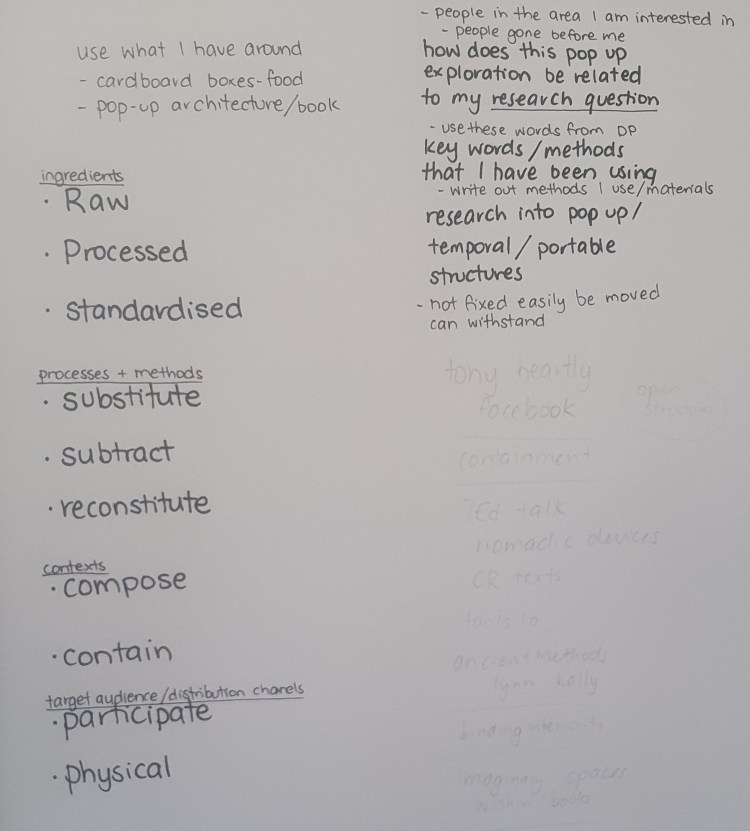 use what I have around
- cardboard boxes-food
- pop-up architecture/book
ingredients
· Raw
· Processed
· standardised
processes + methods
· substitute
· subtract
· reconstitute
contexts
· compose
· contain
target audience/distribution chanels
· participate
· physical
- people in the area I am interested in
- people gone before me
how does this pop up
exploration be related
to my research question
- use these words from DP
key words/methods
that I have been using
- write out methods I use/materials
research into pop up/
temporal/portable
structures
- not fixed easily be moved
can withstand
tony
facebook
open
containment
TEd talk
nomadic devices
CR texts
tools to
ancient methods
lynn kelly
binding
imaginary spaces
within books